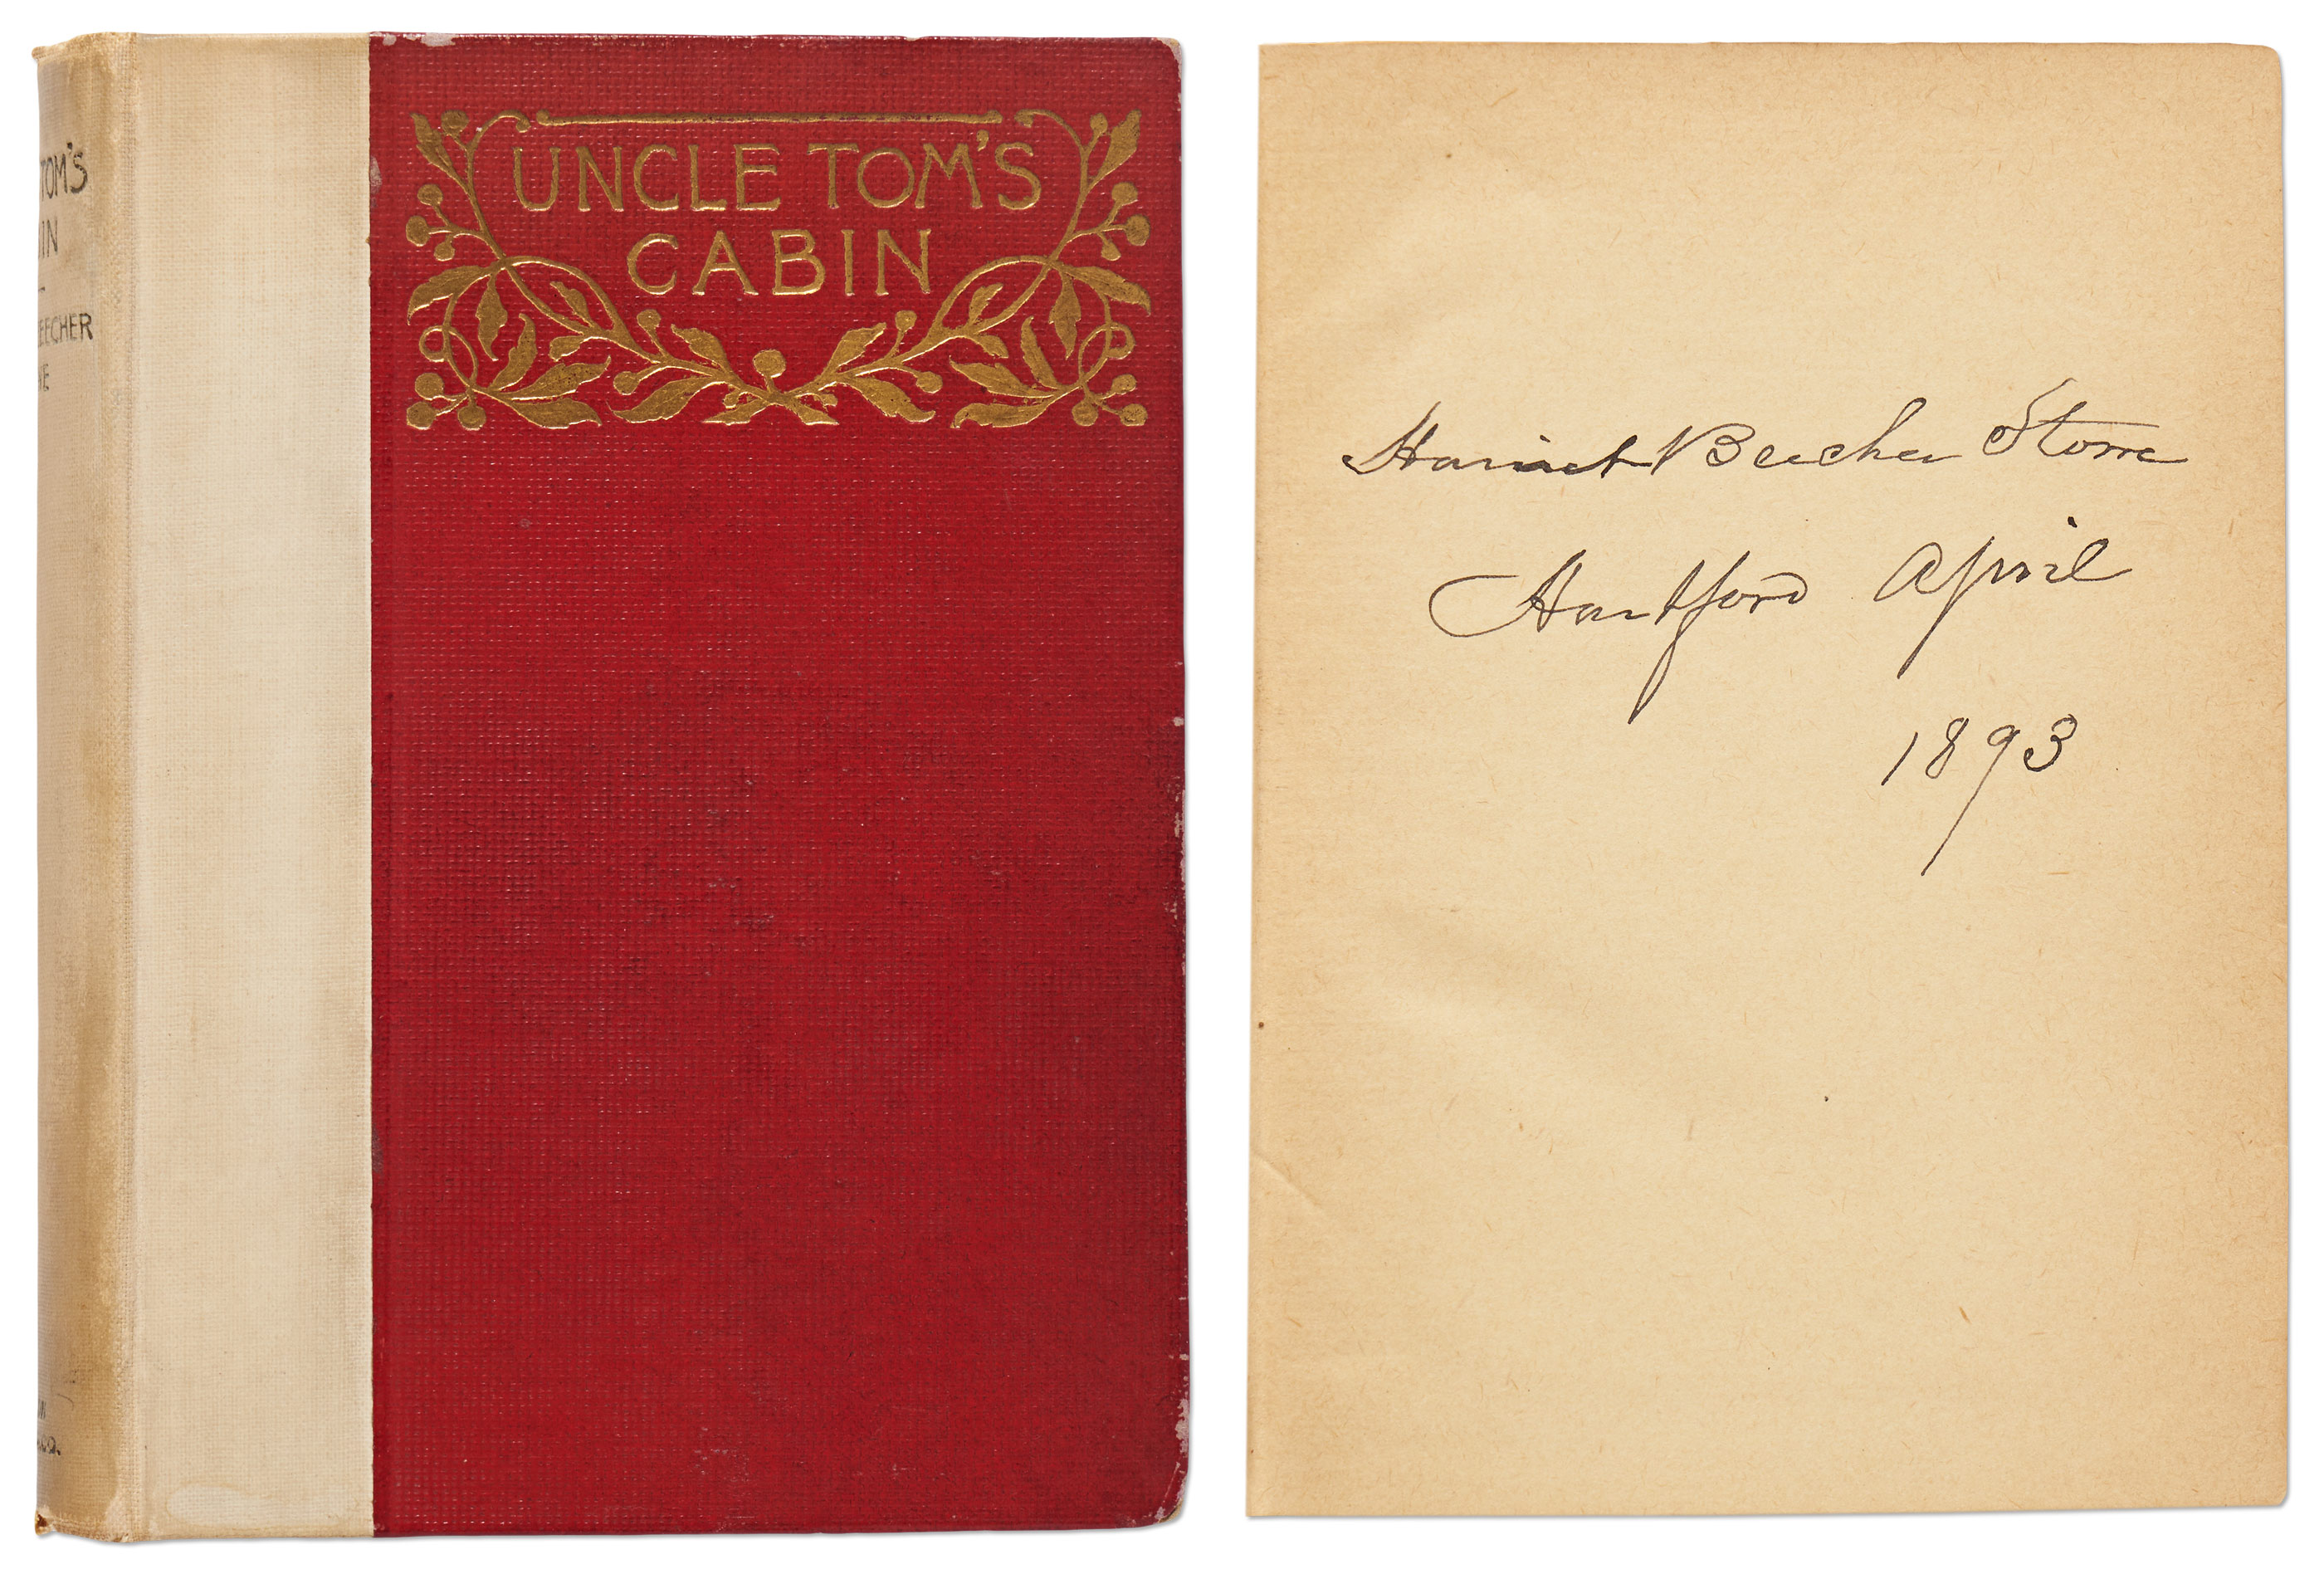 TOM'S
IN
EECHER
CO.
UNCLE TOM'S
CABIN
Harriet Beecher Stowe
Hartford April
1893